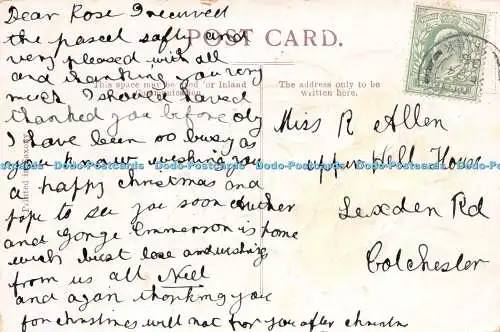 Dear Rose I received
the parcel safly and
very pleased with all
and thanking you very
much I should have
thanked you before oly
I have been so busy as
you know wishing you
a happy christmas and
hope to see you soon
and Gorge Emmerson is home
with best love and wishing
from us all Nell
and again thanking you
for christmas will not for you after
POST CARD.
This space may be used for Inland
The address only to be
written here.
Miss R Allen
upper Hill House
Lexden Rd
Colchester
Dodo-Postcards Dodo-Postcards Dodo-Postcards Dodo-Postcards Dodo-Postcards